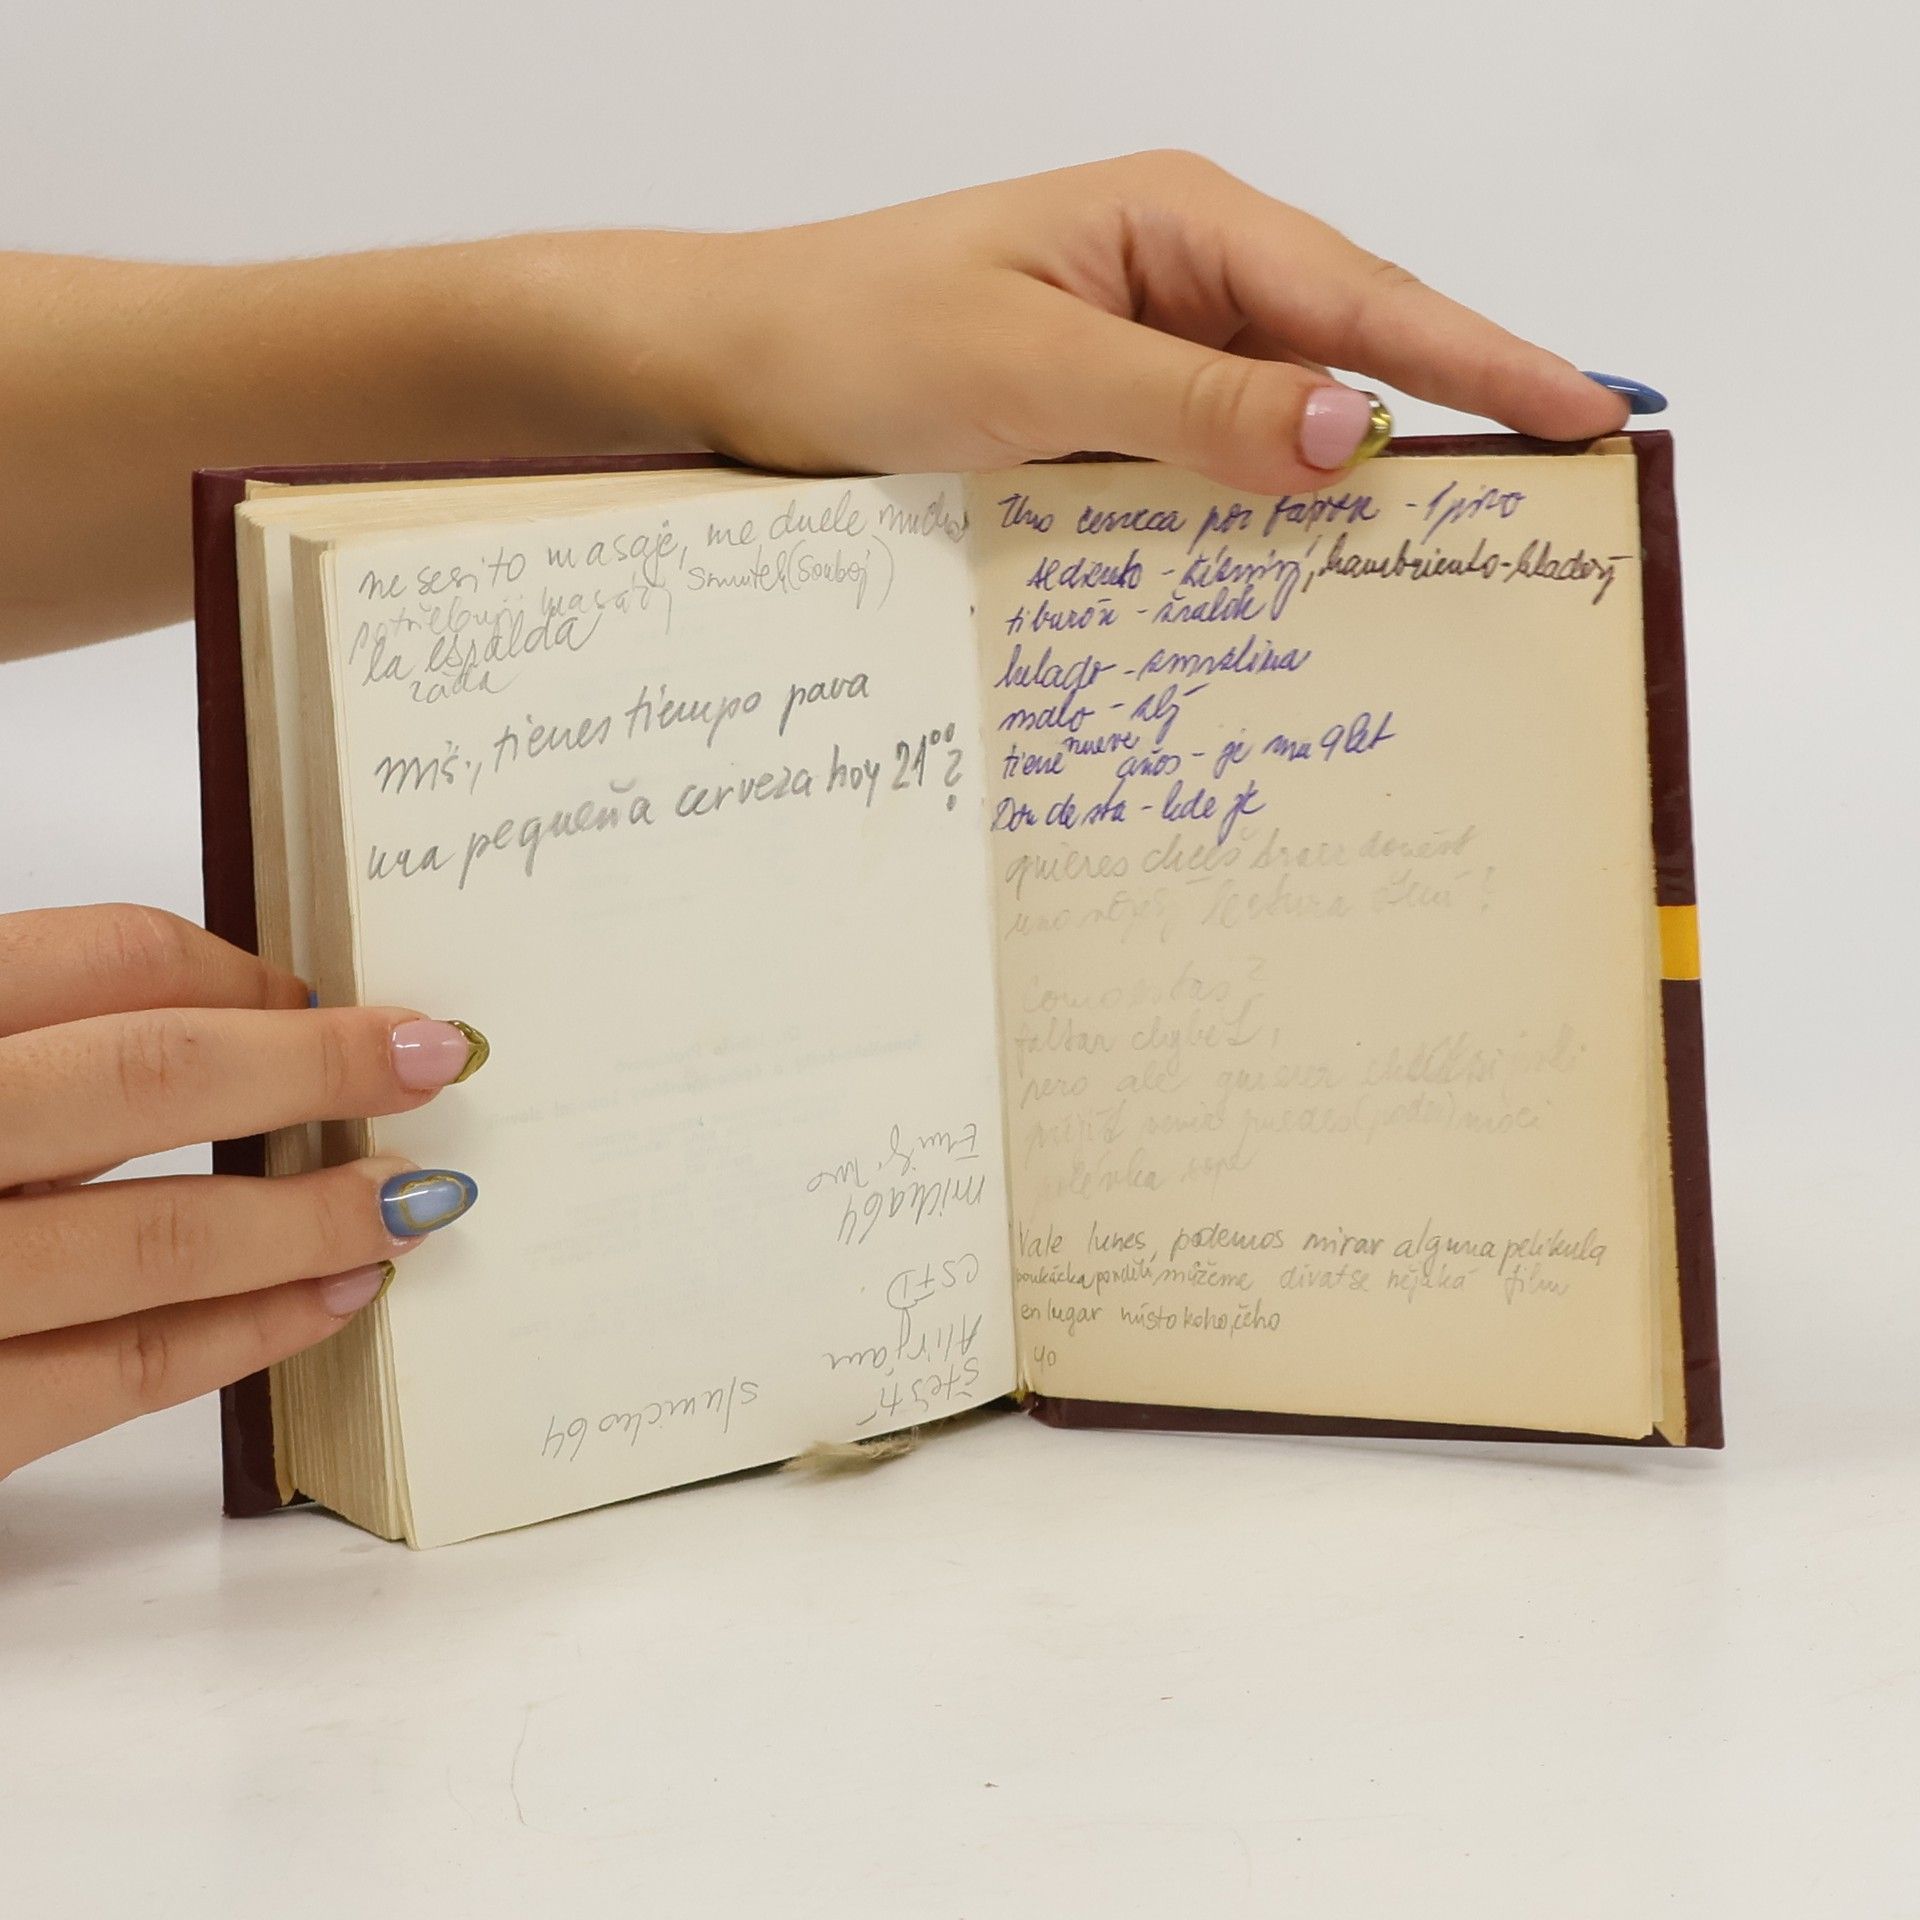 nesesito masaje, me duele mucho
potřebuji masáž smutek (souboj)
la espalda
záda
miš., tienes tiempo para
una pequeña cerveza hoy 21⁰⁰?
micka64
CSFD
štěstí
slunicko64
Uno cerveca por favor - 1 pivo
sediento - žíznivý, hambriento - hladový
tiburón - žralok
helado - zmrzlina
malo - zlý
tiene nueve años - je mu 9 let
Don de sta - kde je
quieres chceš traer donést
uno nějaký lectura
Como estas?
faltar chybět,
pero ale querer chtít
přijít venir puedes (poder) moci
polévka sopa
Vale lunes, podemos mirar alguna pelikula
poukázka pondělí, můžeme dívat se nějaká film
en lugar místo koho, čeho
40